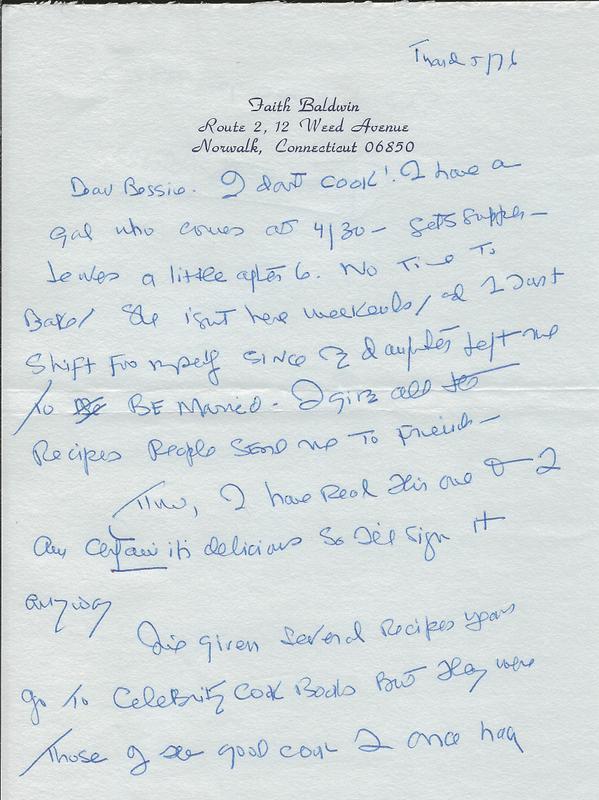 5/76
Faith Baldwin
Route 2, 12 Weed Avenue
Norwalk, Connecticut 06850
Dear Bessie. I don't cook! I have a
gal who comes at 4/30 – gets supper –
leaves a little after 6. No Time To
Bake/ She isn't here weekends/ and I
Shift For myself since 2 daughter left me
To BE Married. I give all
Recipes People Send me To Friends –
I have Read this one & I
am certain it's delicious so I'll sign it
anyway
I've given several Recipes years
go To Celebrity Cook Books But they were
Those of good cook I once had